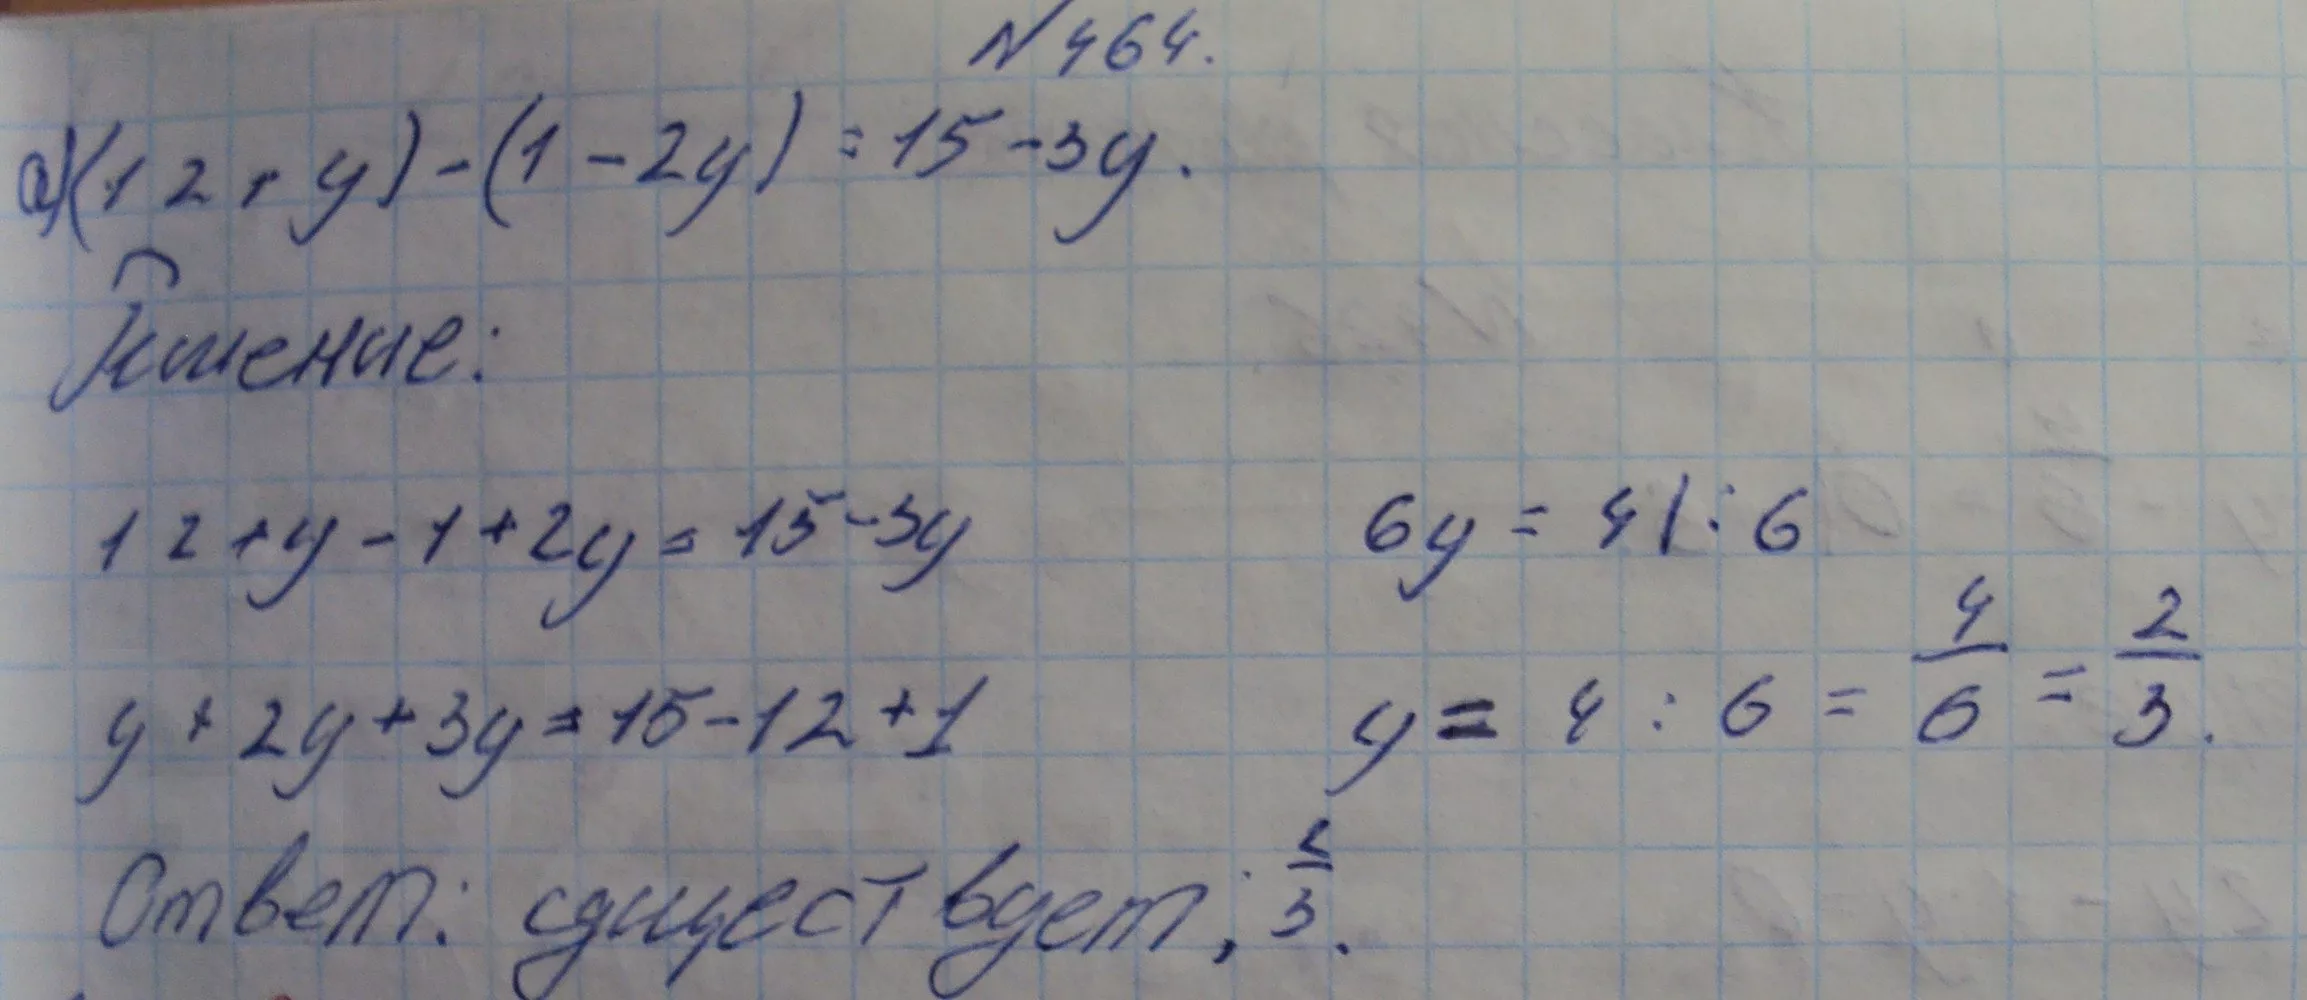 №464.
а)(12+y)-(1-2y)=15-3y.
Решение:
12+y-1+2y=15-3y
y+2y+3y=15-12+1
6y=4|:6
y=4:6=4/6=2/3.
Ответ: существует, 2/3.